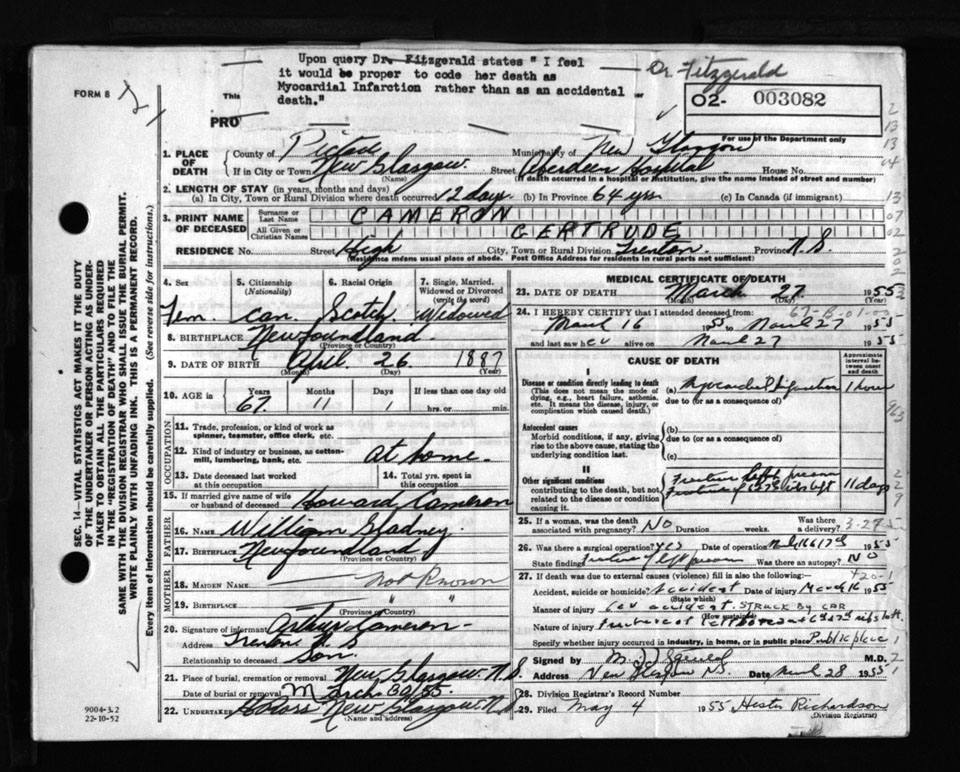 Upon query Dr. Fitzgerald states " I feel
it would be proper to code her death as
Myocardial Infarction rather than as an accidental
death."
Dr. Fitzgerald
FORM B
This
PRO
O2- 003082
For use of the Department only
1. PLACE OF DEATH
County of Pictou Municipality of New Glasgow
If in City or Town New Glasgow Street Aberdeen Hospital House No.
(Name) (If death occurred in a hospital or institution, give the name instead of street and number)
2. LENGTH OF STAY (in years, months and days)
(a) In City, Town or Rural Division where death occurred 12 days (b) In Province 64 yrs (c) In Canada (if immigrant)
3. PRINT NAME OF DECEASED
Surname or Last Name CAMERON
All Given or Christian Names GERTRUDE
RESIDENCE No. Street High City, Town or Rural Division Trenton Province N.S.
(Residence means usual place of abode. Post Office Address for residents in rural parts not sufficient)
4. Sex 5. Citizenship (Nationality) 6. Racial Origin 7. Single, Married, Widowed or Divorced (write the word)
Fem. Can. Scotch Widowed
8. BIRTHPLACE Newfoundland
(Province or Country)
9. DATE OF BIRTH April 26 1887
(Month) (Day) (Year)
10. AGE in Years Months Days If less than one day old
67 11 1 hrs. or min.
OCCUPATION
11. Trade, profession, or kind of work as spinner, teamster, office clerk, etc.
12. Kind of industry or business, as cotton-mill, lumbering, bank, etc. At home.
13. Date deceased last worked at this occupation 14. Total yrs. spent in this occupation
15. If married give name of wife or husband of deceased Howard Cameron
FATHER
16. Name William Gladney
17. Birthplace Newfoundland
(Province or Country)
MOTHER
18. MAIDEN NAME Not Known
19. BIRTHPLACE " "
(Province or Country)
20. Signature of informant Arthur Cameron
Address Trenton N.S.
Relationship to deceased Son.
21. Place of burial, cremation or removal New Glasgow N.S.
Date of burial or removal March 30/55.
22. UNDERTAKER New Glasgow N.S.
(Name and address)
MEDICAL CERTIFICATE OF DEATH
23. DATE OF DEATH March 27 1955
(Month) (Day) (Year)
24. I HEREBY CERTIFY that I attended deceased from:
March 16 1955 to March 27 1955
and last saw her alive on March 27 1955
CAUSE OF DEATH
Approximate interval between onset and death
I
Disease or condition directly leading to death
(This does not mean the mode of dying, e.g., heart failure, asthenia, etc. It means the disease, injury, or complication which caused death.)
(a) Myocardial Infarction 1 hour
due to (or as a consequence of)
Antecedent causes
Morbid conditions, if any, giving rise to the above cause, stating the underlying condition last.
(b)
due to (or as a consequence of)
(c)
II
Other significant conditions
contributing to the death, but not related to the disease or condition causing it.
Fracture left
Fracture of 6th & 7th ribs left 11 days
25. If a woman, was the death associated with pregnancy? NO Duration weeks. Was there a delivery?
3-27
26. Was there a surgical operation? yes Date of operation 1955
State findings Fracture of left Was there an autopsy? NO
27. If death was due to external causes (violence) fill in also the following:
Accident, suicide or homicide? Accident Date of injury March 16 1955
(State which)
Manner of injury Car accident. STRUCK BY CAR
(How sustained)
Nature of injury Fracture of left 6th & 7th ribs left
Specify whether injury occurred in industry, in home, or in public place Public place
Signed by M.D.
Address New Glasgow N.S. Date March 28 1955
28. Division Registrar's Record Number
29. Filed May 4 1955 Hester Richardson
(Division Registrar)
SEC. 14—VITAL STATISTICS ACT MAKES IT THE DUTY
OF THE UNDERTAKER OR PERSON ACTING AS UNDER-
TAKER TO OBTAIN ALL THE PARTICULARS REQUIRED
IN THE "REGISTRATION OF DEATH" AND TO FILE THE
SAME WITH THE DIVISION REGISTRAR WHO SHALL ISSUE THE BURIAL PERMIT.
WRITE PLAINLY WITH UNFADING INK. THIS IS A PERMANENT RECORD.
Every item of information should be carefully supplied. (See reverse side for instructions.)
9004-3.2
22-10-52